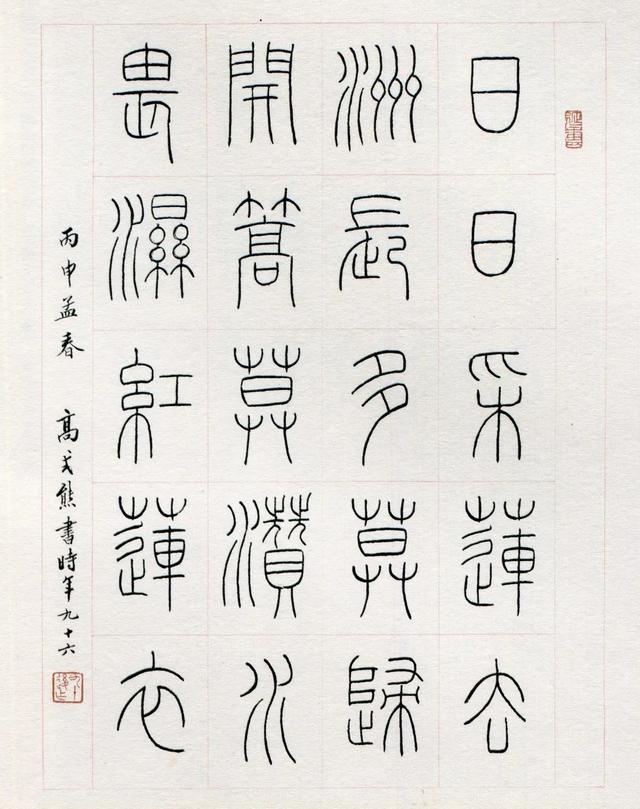 日日采蓮去
洲長多莫歸
開篙莫灒水
畏濕紅蓮衣
丙申孟春 高式熊書時年九十六